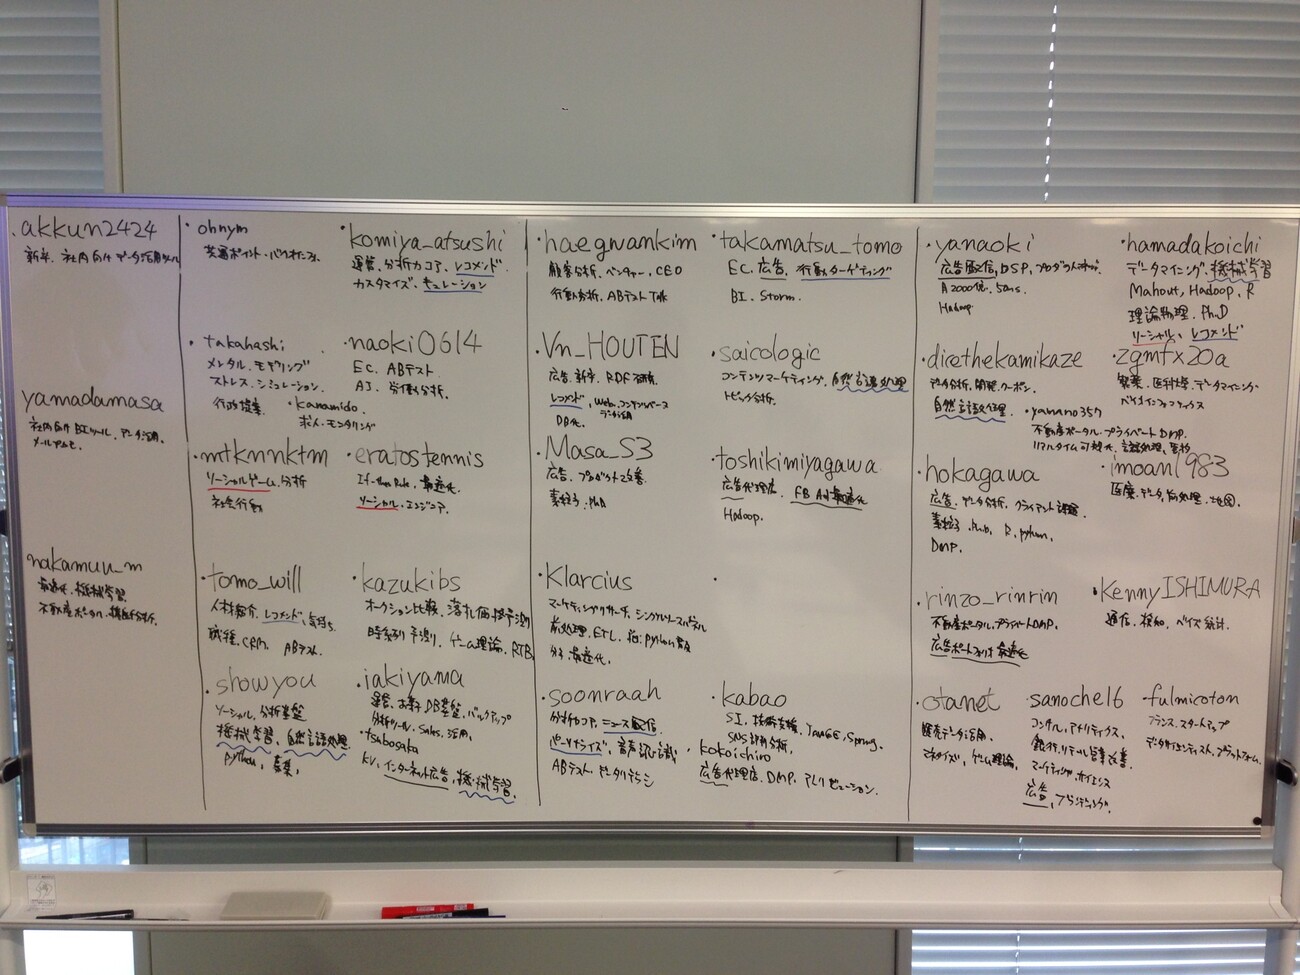 akkun2424
新卒、社内向けデータ活用ツール
yamadamasa
社内向けBIツール、データ活用、
nakamuu_m
最適化、機械学習
不動産ポータル、
・ohnym
共通ポイント・
・komiya_atsushi
運営、分析カコア、レコメンド、
カスタマイズ、キュレーション
・takahashi
メンタル、モデリング
ストレス、シミュレーション、
行政提案
・naoki0614
EC、ABテスト
AJ、労働分析、
・kanamido
求人、モニタリング
・mtkmnktm
ソーシャルゲーム、分析
社会行動
・eratostennis
If-then Rule、最適化、
ソーシャル、エンジニア、
・tomo_will
人材紹介、レコメンド、気持ち
職種、CRM、ABテスト、
・kazukibs
オークション比較、落札価格予測
時系列予測、ゲーム理論、RTB、
・showyou
ソーシャル、分析基盤
機械学習、自然言語処理、
python、募集、
・iakiyama
運営、お菓子DB基盤、バックアップ
分析ツール、Sales、活用、
・tsubosaka
KV、インターネット広告、機械学習、
・haegwamkim
顧客分析、ベンチャー、CEO
行動分析、ABテスト
・takamatsu_tomo
EC、広告、行動ターゲティング
BI、Storm、
・Vn_HOUTEN
広告、新卒、RDF
レコメンド、Web、コンテンツベース
データ活用
DB化、
・saicologic
コンテンツマーケティング、自然言語処理
トピック分析、
・Masa_S3
広告、プロダクト改善
素粒子、PhD
・toshikimiyagawa
広告代理店、FB Ad最適化
Hadoop、
・Klarcius
マーケティングリサーチ、シングルソースパネル
前処理、ETL、python
分析、最適化、
・soonraah
分析カコア、ニュース配信
パーソナライズ、音声認識
ABテスト、
・kabao
SI、技術支援、Spring、
SNS評判分析、
・kokoichiro
広告代理店、DMP、アトリビューション、
・yanaoki
広告配信、DSP、
月2000億、50ms、
Hadoop
・hamadakoichi
データマイニング、機械学習
Mahout、Hadoop、R
理論物理、Ph.D
ソーシャル、レコメンド
・dicethekamikaze
データ分析、開発、クーポン、
自然言語処理
・zgmfx20a
製薬、医科大学、データマイニング
バイオインフォマティクス
・yamano357
不動産ポータル、プライベートDMP、
リアルタイム可視化、言語処理、
・hokagawa
広告、データ分析、クライアント課題、
素粒子、Ph.D、R、python、
DMP、
・imoan1983
医療、データ前処理、地図、
・rinzo_rinrin
不動産ポータル、プライベートDMP、
広告ポートフォリオ最適化
・KennyISHIMURA
通信、検知、ベイズ統計、
・otanet
購買データ活用、
マネタイズ、ゲーム理論、
・sanoche16
コンサル、アナリティクス、
銀行、リテール営業改善、
マーケティング、サイエンス
広告、ブランディング、
・fulmicoton
フランス、スタートアップ
データサイエンティスト、プラットフォーム、